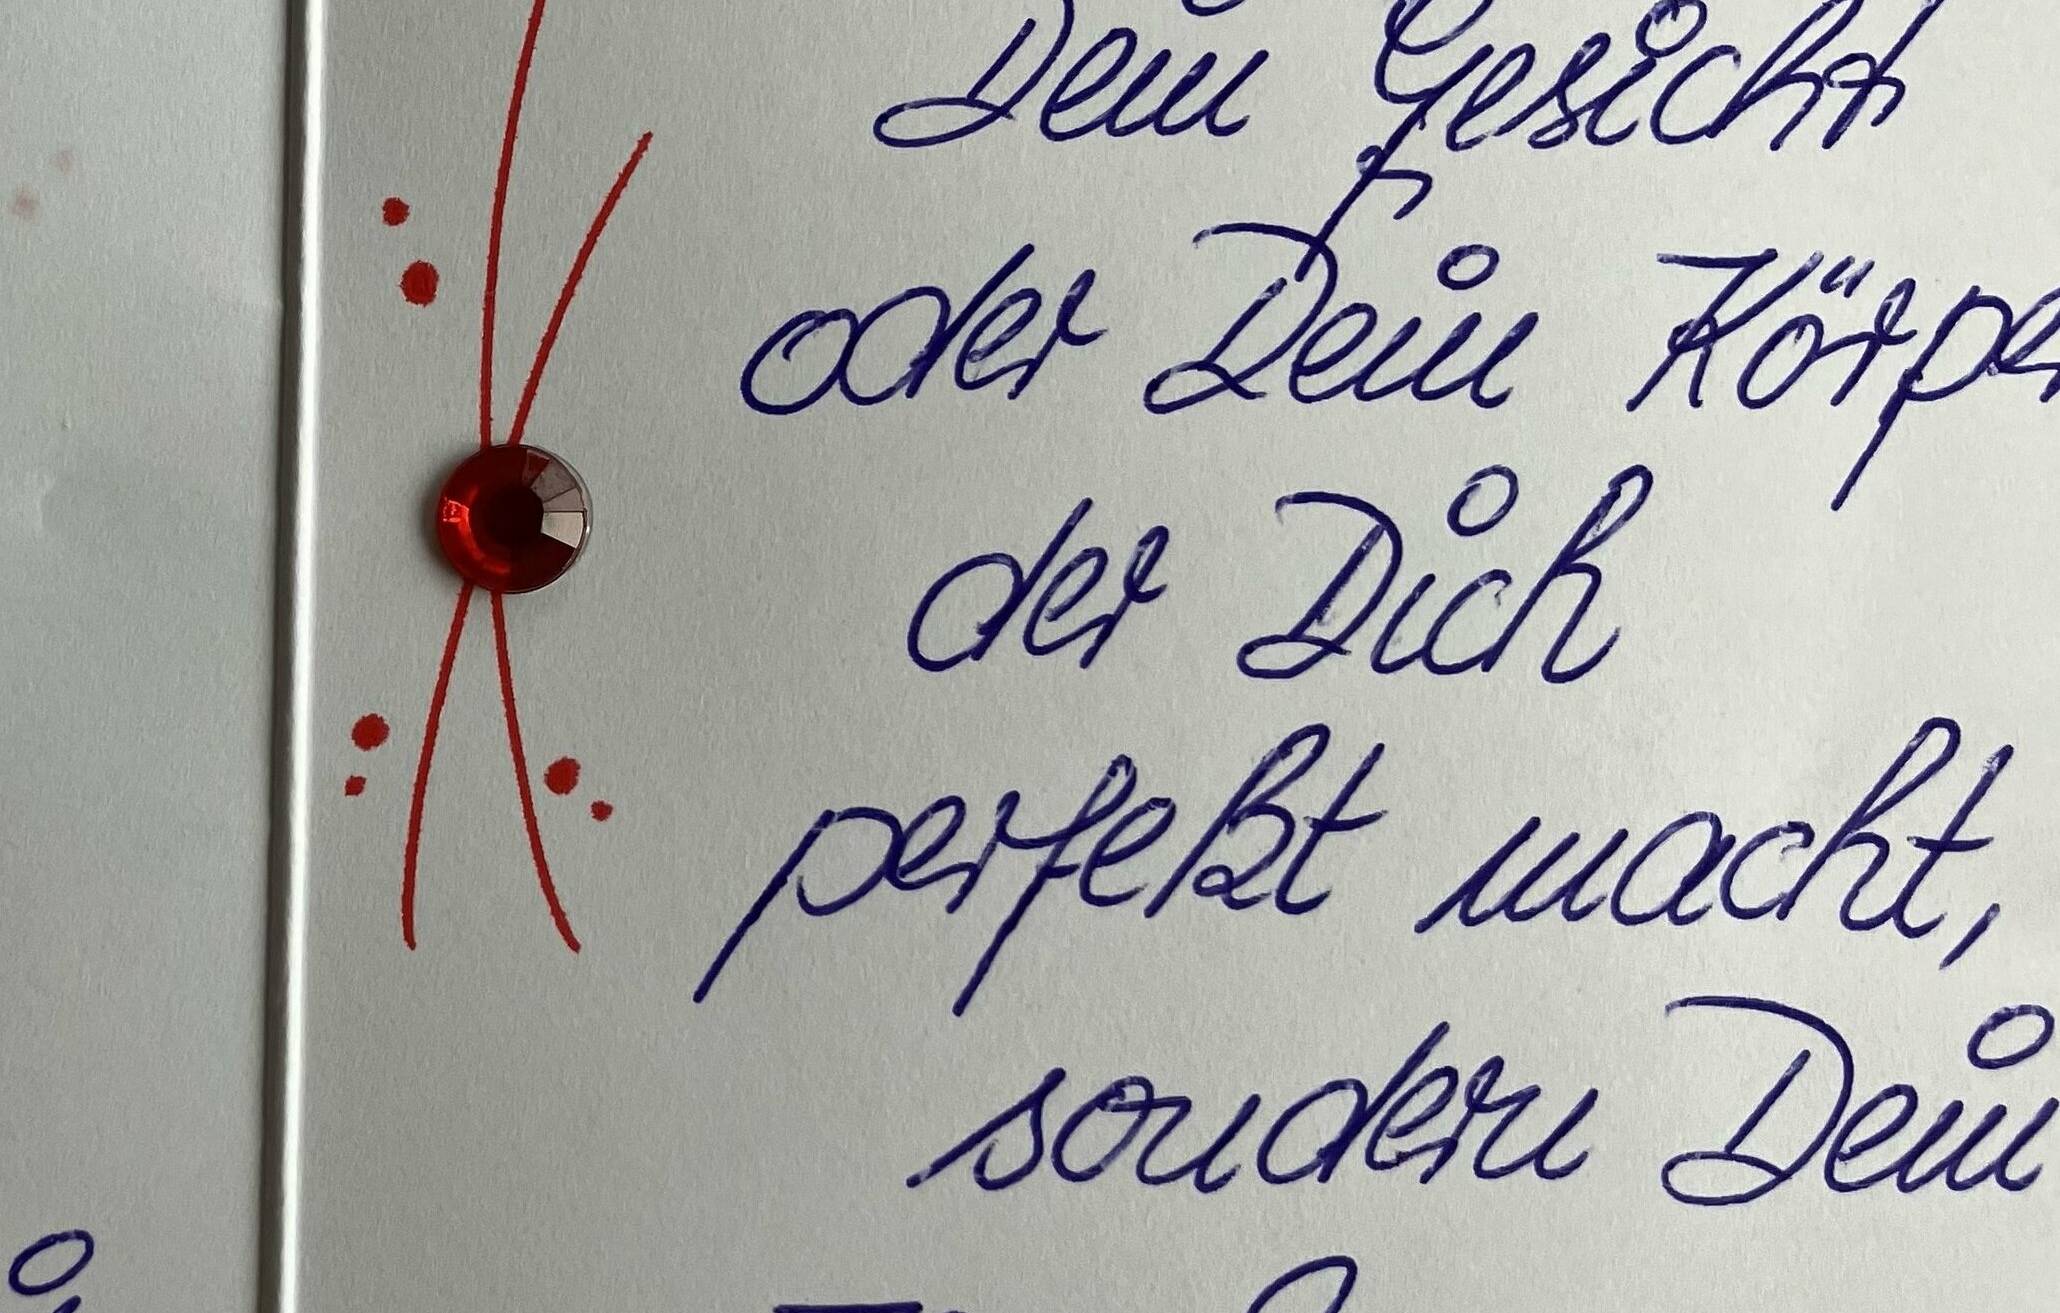 Dein Gesicht
oder Dein Körper
der Dich
perfekt macht,
sondern Dein